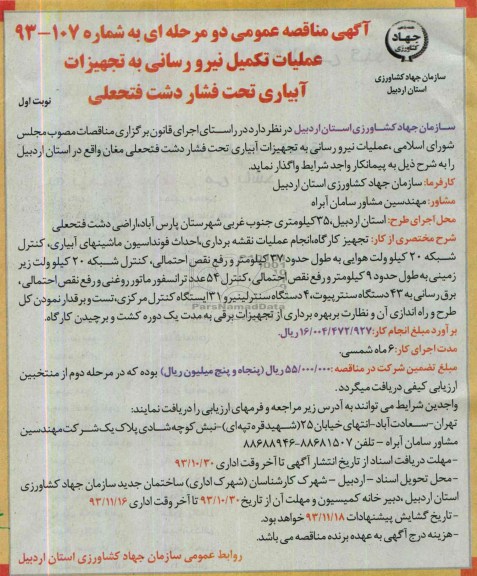 آگهی مناقصه عمومی دو مرحله ای به شماره ۱۰۷-۹۳
عملیات تکمیل نیرو رسانی به تجهیزات
آبیاری تحت فشار دشت فتحعلی
جهاد
کشاورزی
سازمان جهاد کشاورزی
استان اردبیل
نوبت اول
سازمان جهاد کشاورزی استان اردبیل در نظر دارد در راستای اجرای قانون برگزاری مناقصات مصوب مجلس
شورای اسلامی، عملیات نیرو رسانی به تجهیزات آبیاری تحت فشار دشت فتحعلی مغان واقع در استان اردبیل
را به شرح ذیل به پیمانکار واجد شرایط واگذار نماید.
کارفرما: سازمان جهاد کشاورزی استان اردبیل
مشاور: مهندسین مشاور سامان آبراه
محل اجرای طرح: استان اردبیل، ۳۵کیلومتری جنوب غربی شهرستان پارس آباد، اراضی دشت فتحعلی
شرح مختصری از کار: تجهیز کارگاه، انجام عملیات نقشه برداری، احداث فونداسیون ماشینهای آبیاری، کنترل
شبکه ۲۰ کیلو ولت هوایی به طول حدود ۳۷ کیلومتر و رفع نقص احتمالی، کنترل شبکه ۲۰ کیلو ولت زیر
زمینی به طول حدود ۹ کیلومتر و رفع نقص احتمالی، کنترل ۵۴ عدد ترانسفورماتور روغنی و رفع نقص احتمالی،
برق رسانی به ۴۳ دستگاه سنترپیوت، ۴ دستگاه سنترلینیر و ۳۱ ایستگاه کنترل مرکزی، تست و برقدار نمودن کل
طرح و راه اندازی آن و نظارت بر بهره برداری از تجهیزات برقی به مدت یک دوره کشت و برچیدن کارگاه.
برآورد مبلغ انجام کار: ۱۶/۰۰۴/۴۷۲/۹۲۷ ریال.
مدت اجرای کار: ۶ ماه شمسی.
مبلغ تضمین شرکت در مناقصه: ۵۵/۰۰۰/۰۰۰ ریال (پنجاه و پنج میلیون ریال) بوده که در مرحله دوم از منتخبین
ارزیابی کیفی دریافت میگردد.
واجدین شرایط می توانند به آدرس زیر مراجعه و فرمهای ارزیابی را دریافت نمایند:
تهران-سعادت آباد-انتهای خیابان ۲۵(شهید قره تپه ای)-نبش کوچه شادی پلاک یک شرکت مهندسین
مشاور سامان آبراه - تلفن ۸۸۶۸۱۵۰۷-۸۸۶۸۸۹۴۶
-مهلت دریافت اسناد از تاریخ انتشار آگهی تا آخر وقت اداری ۹۳/۱۰/۳۰
-محل تحویل اسناد - اردبیل - شهرک کارشناسان (شهرک اداری) ساختمان جدید سازمان جهاد کشاورزی
استان اردبیل، دبیر خانه کمیسیون و مهلت آن از تاریخ ۹۳/۱۰/۳۰ تا آخر وقت اداری ۹۳/۱۱/۱۶
-تاریخ گشایش پیشنهادات ۹۳/۱۱/۱۸ خواهد بود.
-هزینه درج آگهی به عهده برنده مناقصه می باشد.
روابط عمومی سازمان جهاد کشاورزی استان اردبیل
ParsNamadData